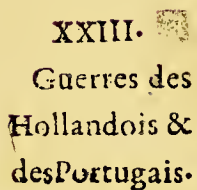 XXIII.
Guerres des
Hollandois &
desPortugais.